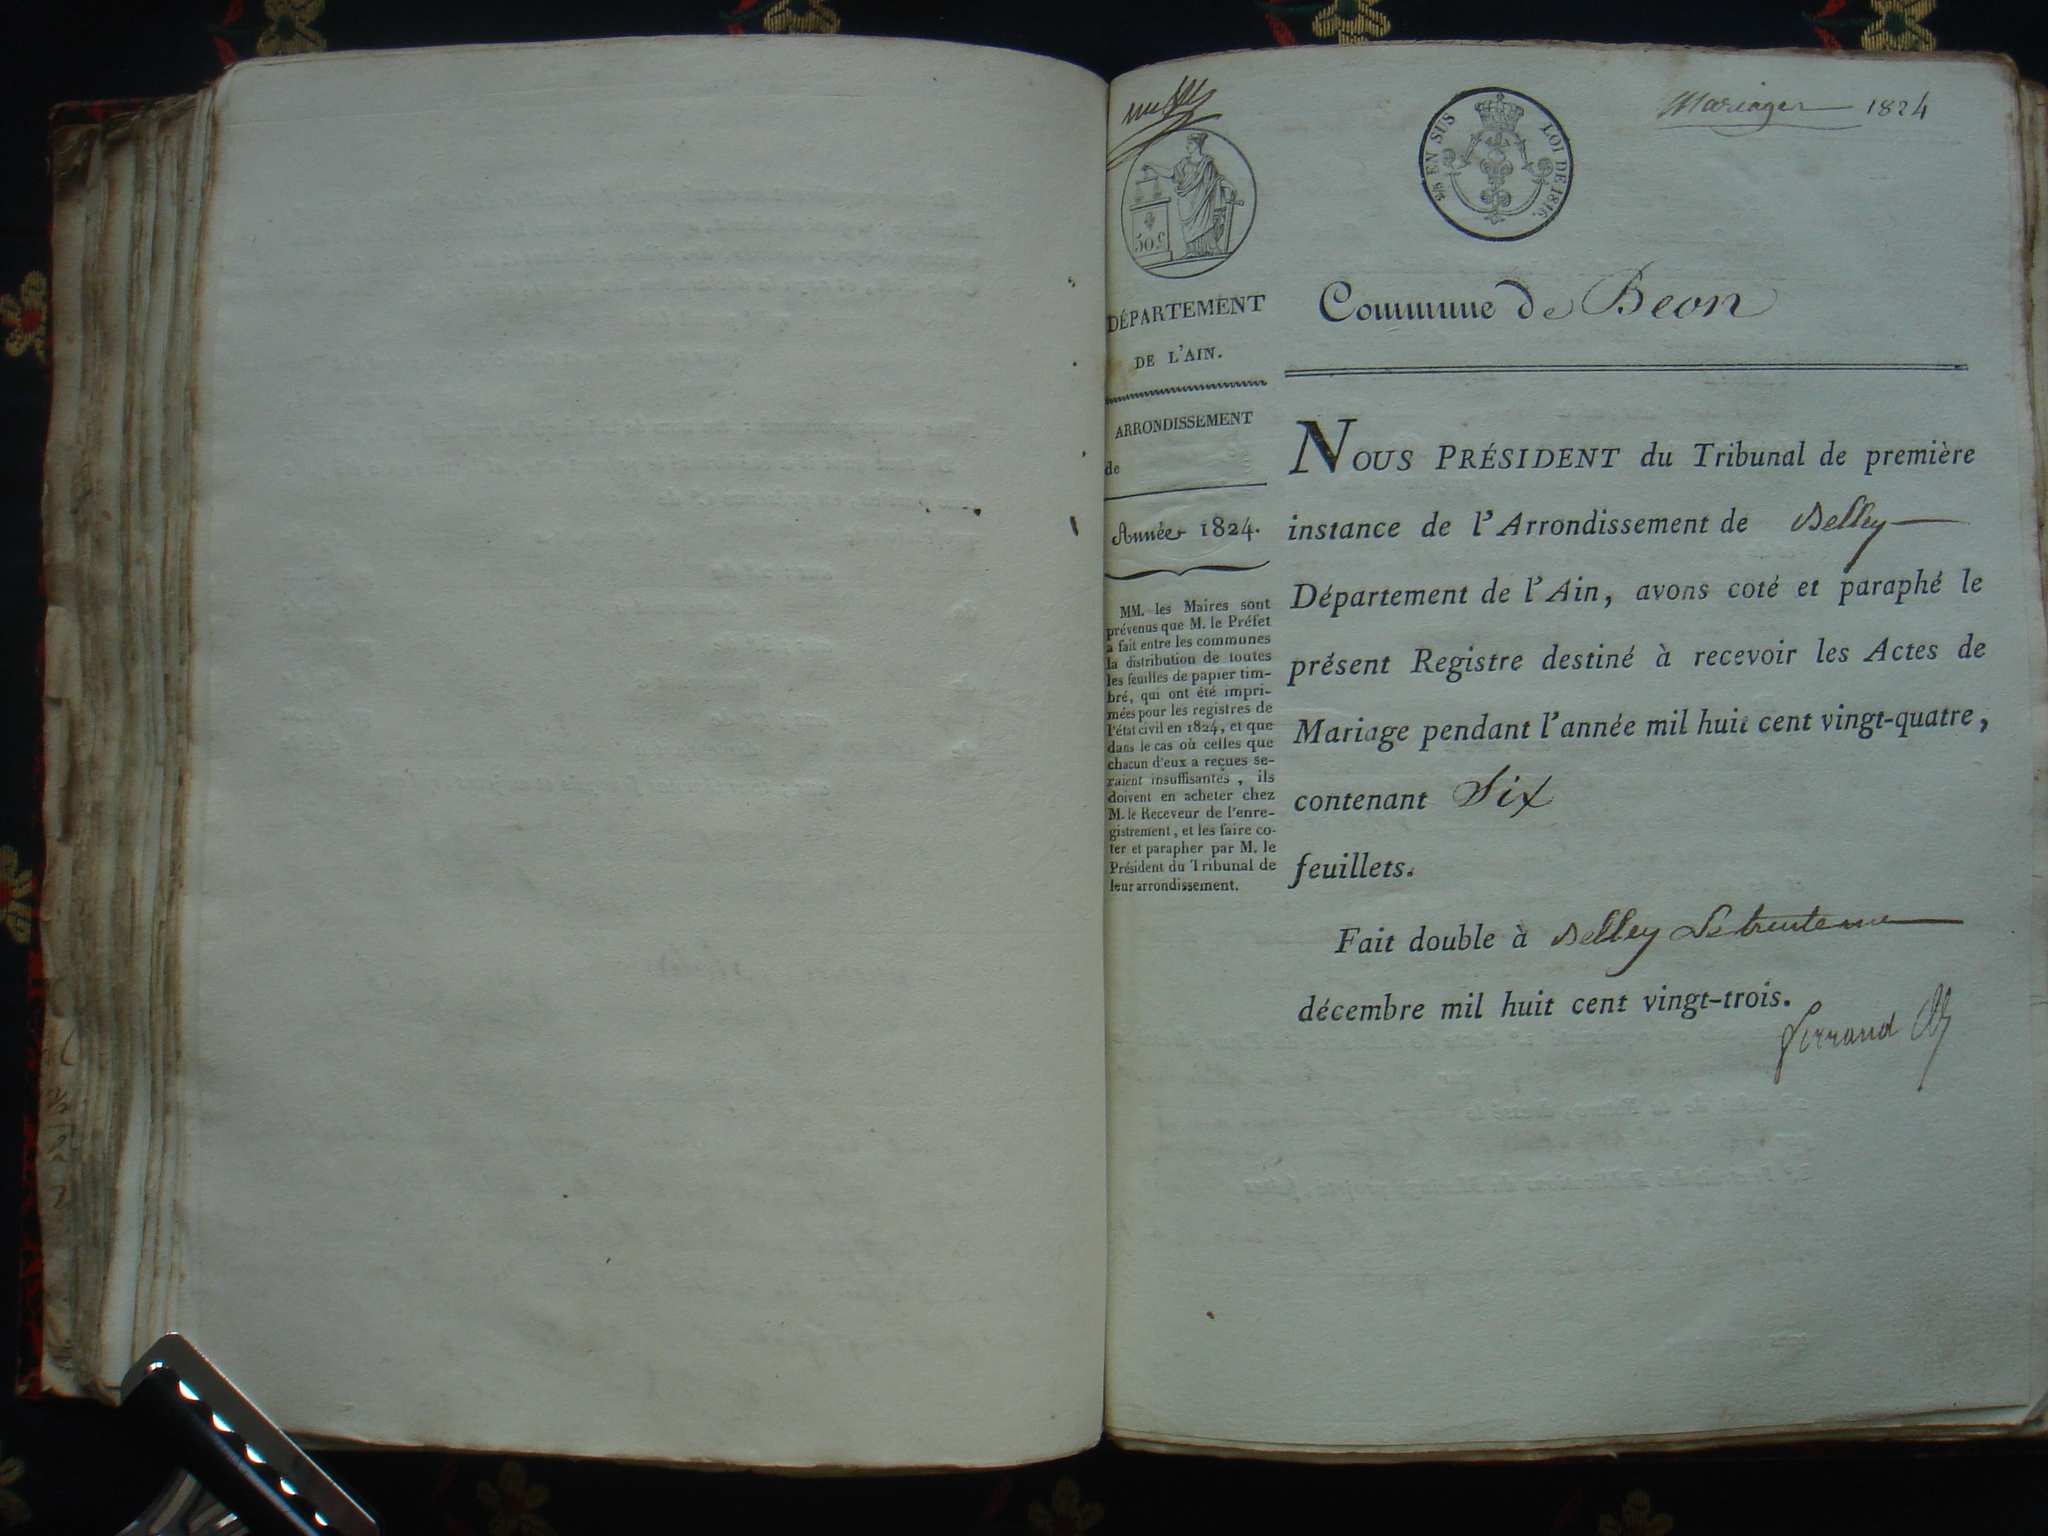 Mariages 1824
EN SUS LOI DE 1816.
50 c
DÉPARTEMENT
DE L'AIN.
ARRONDISSEMENT
de
Année 1824.
MM. les Maires sont
prévenus que M. le Préfet
a fait entre les communes
la distribution de toutes
les feuilles de papier tim-
bré, qui ont été impri-
mées pour les registres de
l'état civil en 1824, et que
dans le cas où celles que
chacun d'eux a reçues se-
raient insuffisantes, ils
doivent en acheter chez
M. le Receveur de l'enre-
gistrement, et les faire co-
ter et parapher par M. le
Président du Tribunal de
leur arrondissement.
Commune de Beon
NOUS PRÉSIDENT du Tribunal de première
instance de l'Arrondissement de Belley
Département de l'Ain, avons coté et paraphé le
présent Registre destiné à recevoir les Actes de
Mariage pendant l'année mil huit cent vingt-quatre,
contenant Six
feuillets.
Fait double à Belley le trente
décembre mil huit cent vingt-trois.